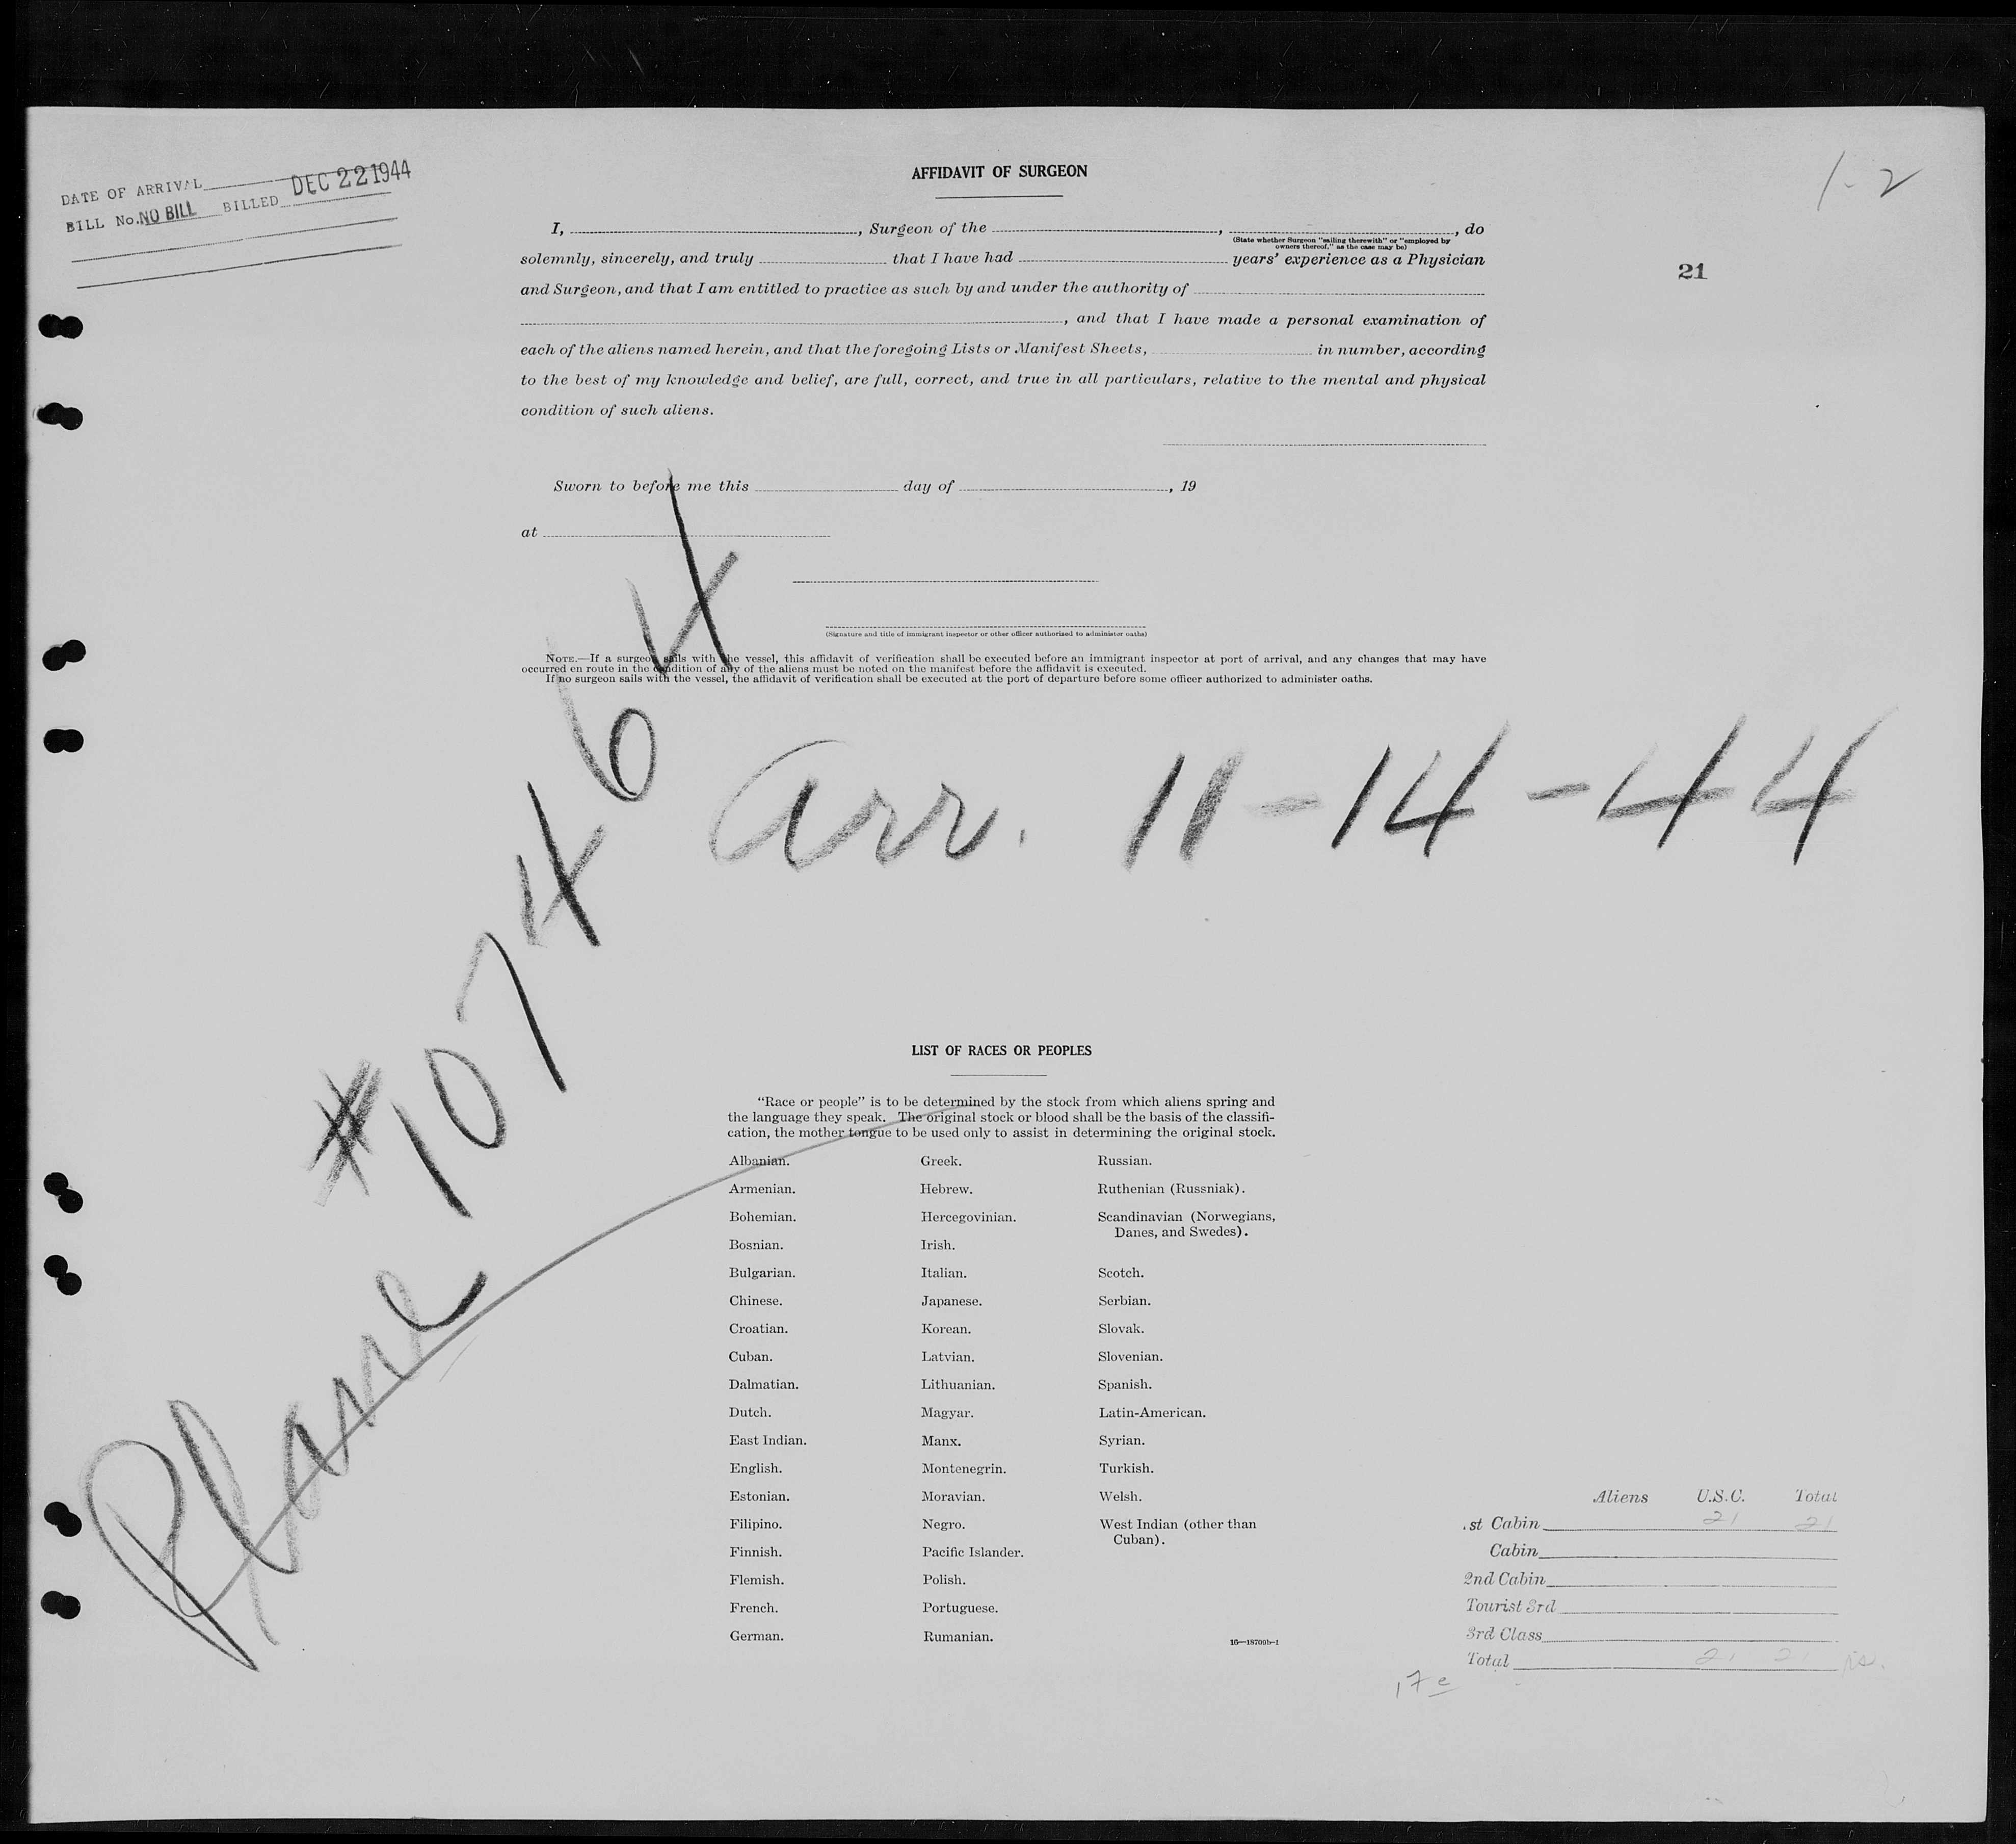 DATE OF ARRIVAL
DEC 22 1944
BILL No. NO BILL BILLED
AFFIDAVIT OF SURGEON
1-2
21
I, , Surgeon of the , , do
(State whether Surgeon "sailing therewith" or "employed by
owners thereof," as the case may be)
solemnly, sincerely, and truly that I have had years' experience as a Physician
and Surgeon, and that I am entitled to practice as such by and under the authority of
, and that I have made a personal examination of
each of the aliens named herein, and that the foregoing Lists or Manifest Sheets, in number, according
to the best of my knowledge and belief, are full, correct, and true in all particulars, relative to the mental and physical
condition of such aliens.
Sworn to before me this day of , 19
at
(Signature and title of immigrant inspector or other officer authorized to administer oaths)
NOTE.—If a surgeon sails with the vessel, this affidavit of verification shall be executed before an immigrant inspector at port of arrival, and any changes that may have
occurred en route in the condition of any of the aliens must be noted on the manifest before the affidavit is executed.
If no surgeon sails with the vessel, the affidavit of verification shall be executed at the port of departure before some officer authorized to administer oaths.
Plane #107464
arr. 11-14-44
LIST OF RACES OR PEOPLES
"Race or people" is to be determined by the stock from which aliens spring and
the language they speak. The original stock or blood shall be the basis of the classifi-
cation, the mother tongue to be used only to assist in determining the original stock.
Albanian.
Armenian.
Bohemian.
Bosnian.
Bulgarian.
Chinese.
Croatian.
Cuban.
Dalmatian.
Dutch.
East Indian.
English.
Estonian.
Filipino.
Finnish.
Flemish.
French.
German.
Greek.
Hebrew.
Hercegovinian.
Irish.
Italian.
Japanese.
Korean.
Latvian.
Lithuanian.
Magyar.
Manx.
Montenegrin.
Moravian.
Negro.
Pacific Islander.
Polish.
Portuguese.
Rumanian.
Russian.
Ruthenian (Russniak).
Scandinavian (Norwegians,
Danes, and Swedes).
Scotch.
Serbian.
Slovak.
Slovenian.
Spanish.
Latin-American.
Syrian.
Turkish.
Welsh.
West Indian (other than
Cuban).
16—18709b-1
Aliens U.S.C. Total
.st Cabin 21 21
Cabin
2nd Cabin
Tourist 3rd
3rd Class
Total 21 21
17e